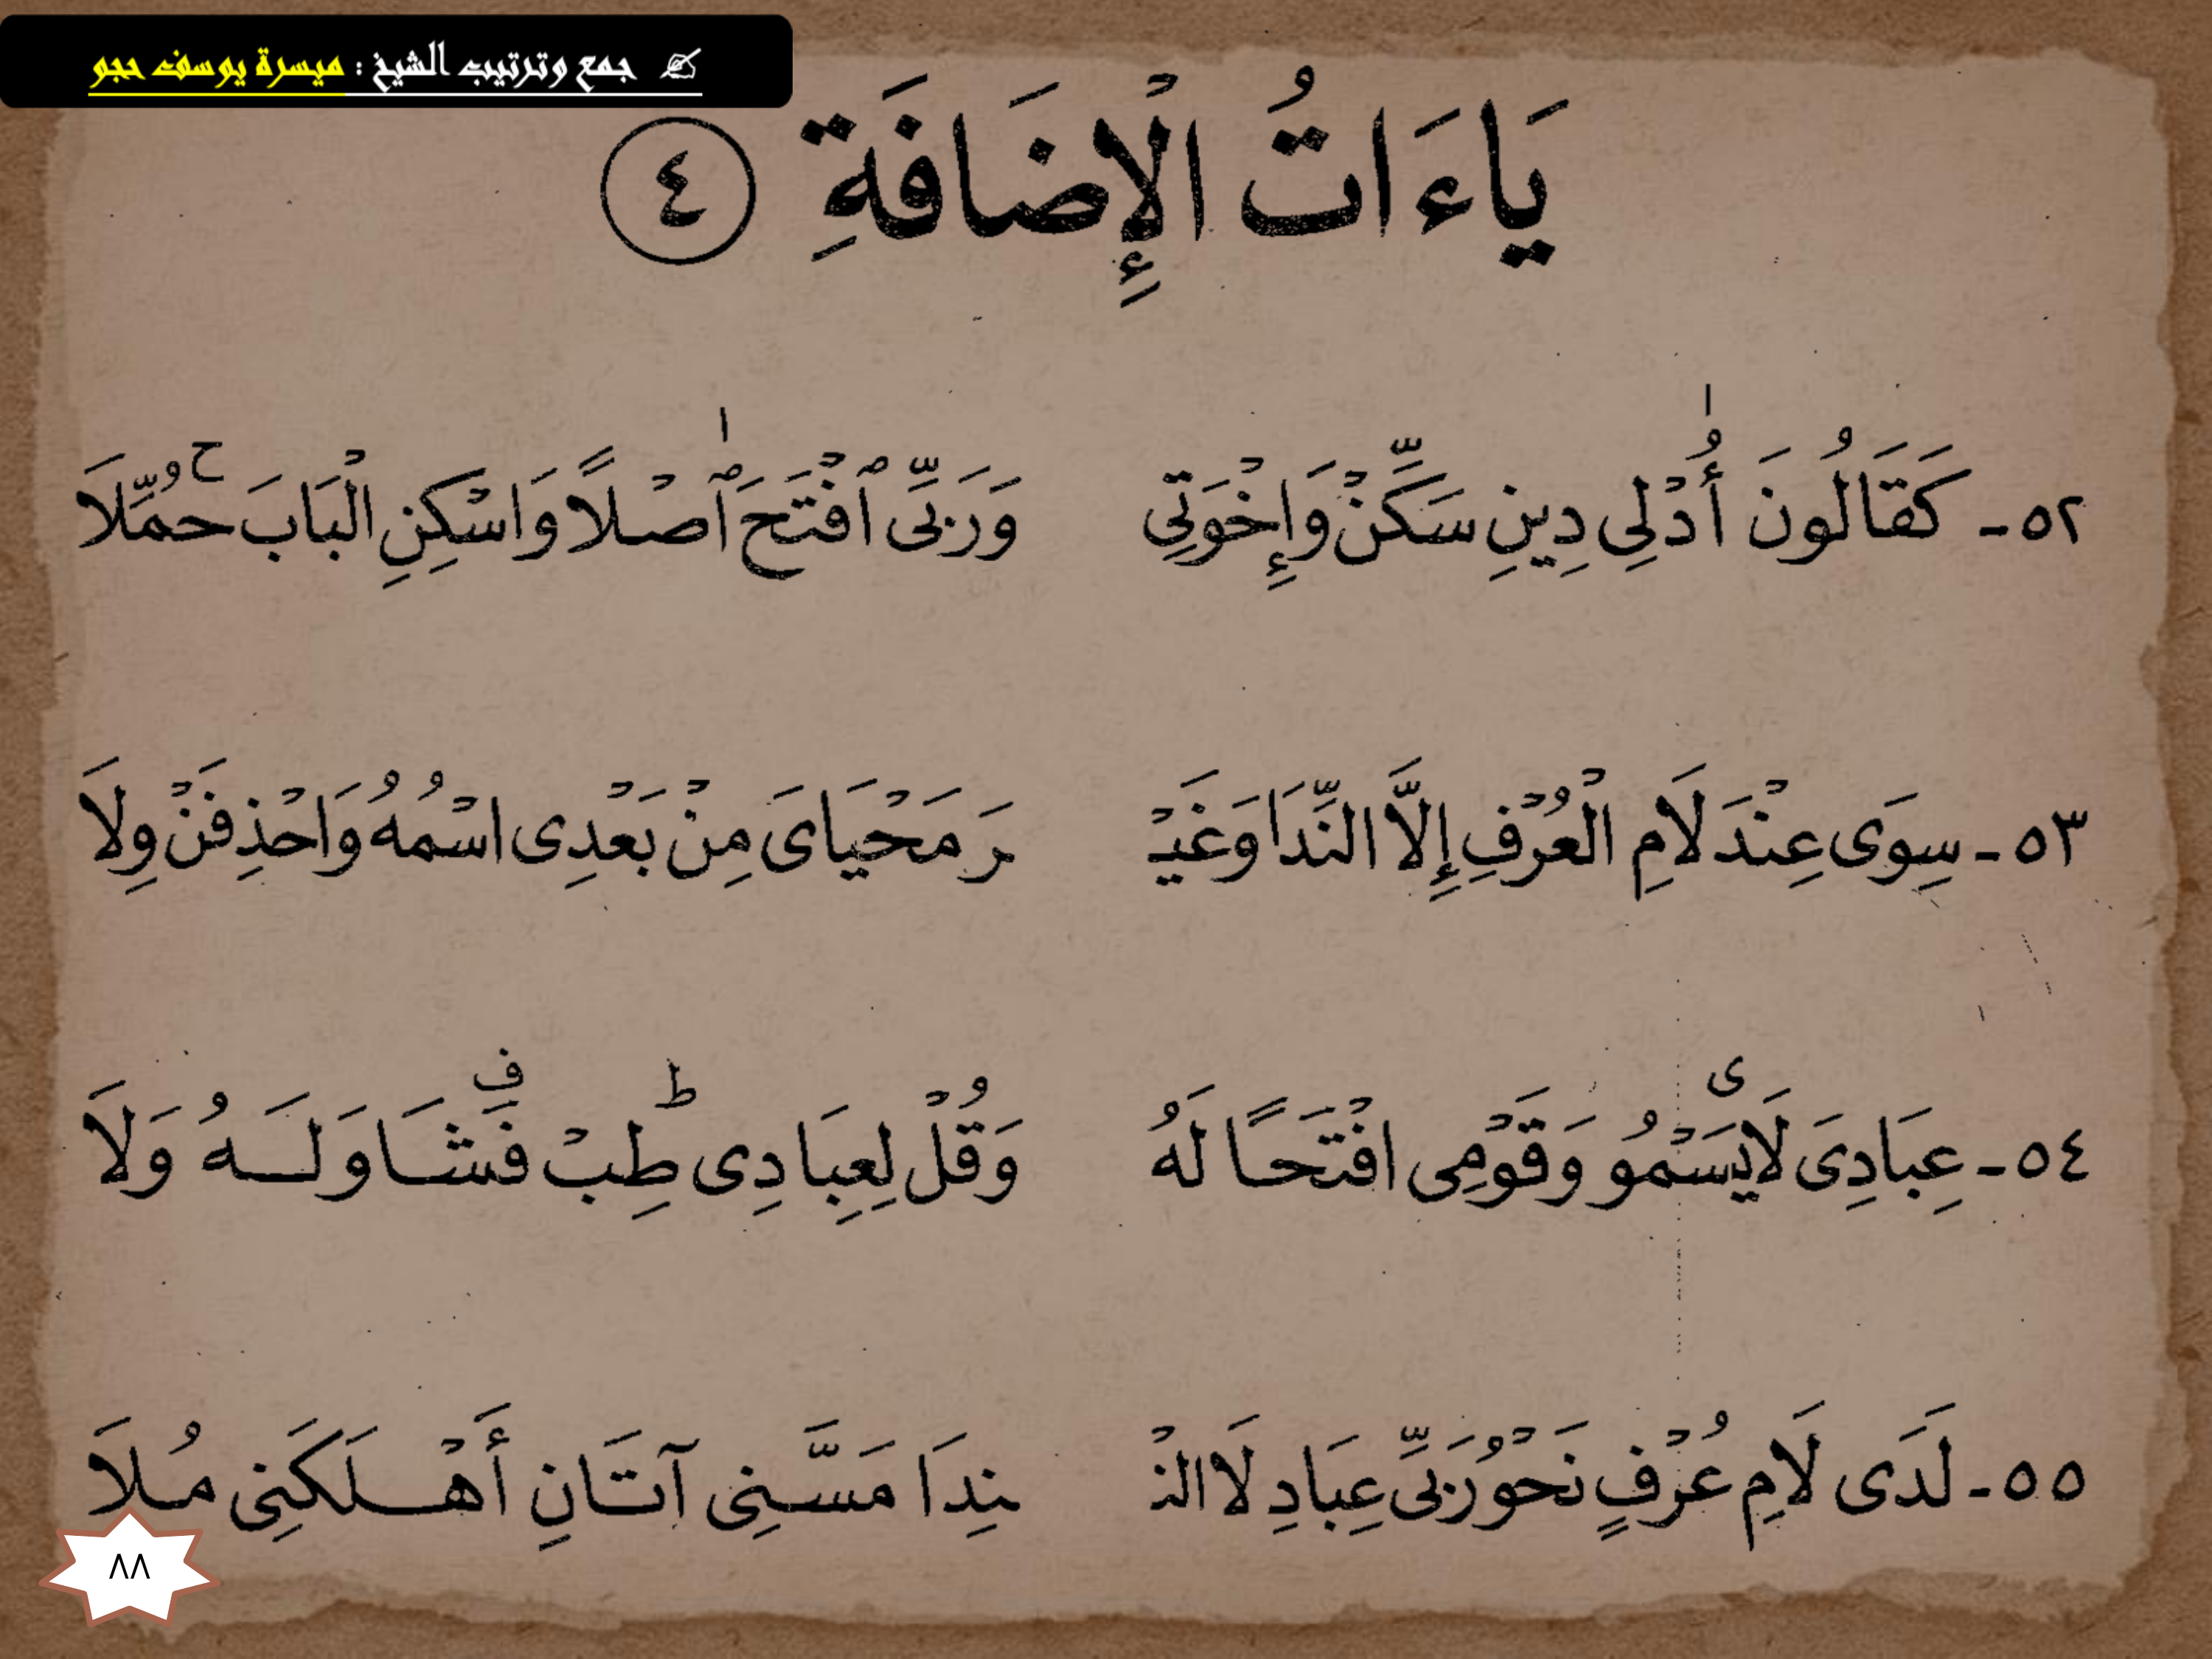 جمع وترتيب الشيخ : ميسرة يوسف حجو
يَاءَاتُ الْإِضَافَةِ ٤
٥٢- كَقَالُونَ أُدْ لِي دِينِ سَكِّنْ وَإِخْوَتِي وَرَبِّي ٱفْتَحَ ٱصْلًا وَاسْكِنِ الْبَابَ حُمِّلَا
٥٣- سِوَى عِنْدَ لَامِ الْعُرْفِ إِلَّا النِّدَا وَغَيْـ ـرَ مَحْيَايَ مِنْ بَعْدِي اسْمُهُ وَاحْذِفَنْ وِلَا
٥٤- عِبَادِيَ لَا يَسْمُو وَقَوْمِي افْتَحًا لَهُ وَقُلْ لِعِبَادِي طِبْ فَشَا وَلَهُ وَلَا
٥٥- لَدَى لَامِ عُرْفٍ نَحْوُ رَبِّي عِبَادِ لَا النْـ ـنِدَا مَسَّنِي آتَانِ أَهْلَكَنِي مُلَا
٨٨